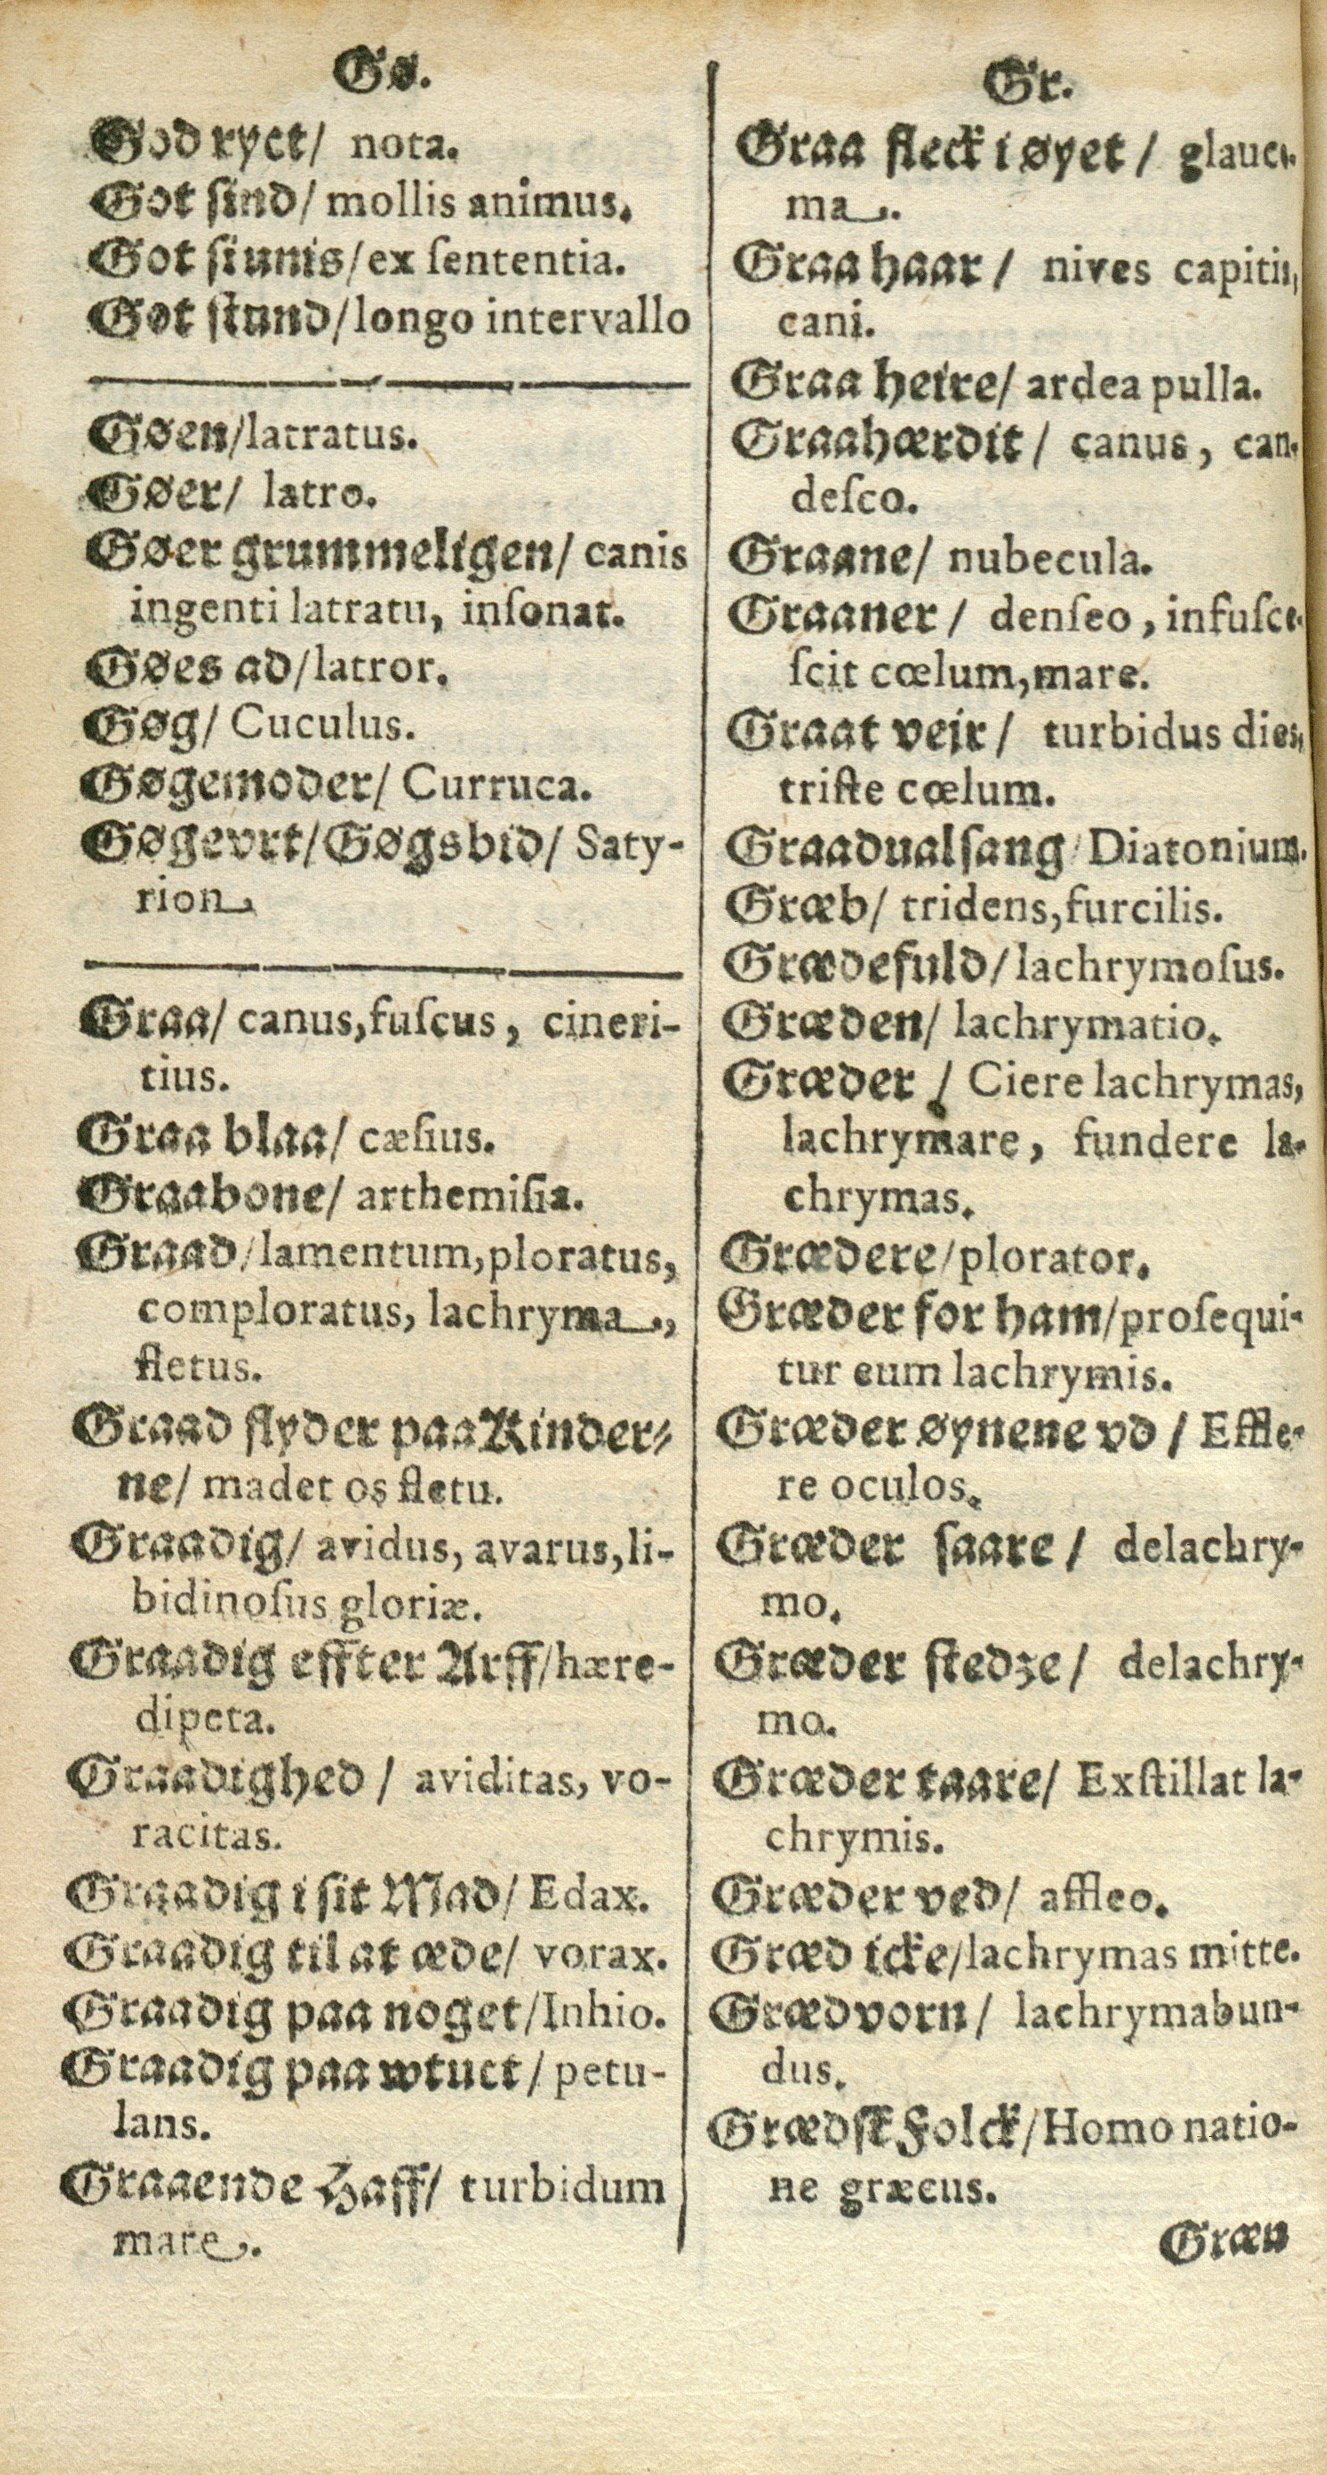 Gø.
God ryct/ nota.
Got sind/ mollis animus.
Got siunis/ex ſententia.
Got stund/longo intervallo
Gøen/latratus.
Gøer/ latro.
Gøer grummeligen/ canis
ingenti latratu, inſonat.
Gøes ad/latror.
Gøg/ Cuculus.
Gøgemoder/ Curruca.
Gøgevrt/Gøgsbid/ Saty-
rion
Graa/ canus,fuſcus, cineri-
tius.
Graa blaa/ cæſius.
Graabone/ arthemiſia.
Graad/lamentum,ploratus,
comploratus, lachryma.,
fletus.
Graad flyder paa Kinder-
ne/ madet os fletu.
Graadig/ avidus, avarus,li-
bidinoſus gloriæ.
Graadig effter Arff/hære-
dipeta.
Graadighed / aviditas, vo-
racitas.
Graadig i sit Mad/ Edax.
Graadig til at æde/ vorax.
Graadig paa noget/Inhio.
Graadig paa wtuct/ petu-
lans.
Graaende Haff/ turbidum
mare.
Gr.
Graa fleck i øyet / glauco-
ma.
Graa haar / nives capitis,
cani.
Graa heire/ ardea pulla.
Graahærdit/ canus, can-
deſco.
Graane/ nubecula.
Graaner / denſeo, infuſce-
ſcit cœlum,mare.
Graat vejr/ turbidus dies,
triſte cœlum.
Graadualsang/Diatonium.
Græb/ tridens,furcilis.
Grædefuld/lachrymoſus.
Græden/ lachrymatio.
Græder / Ciere lachrymas,
lachrymare, fundere la-
chrymas.
Grædere/plorator.
Græder for ham/proſequi-
tur eum lachrymis.
Græder øynene vd / Effle-
re oculos.
Græder saare / delachry-
mo.
Græder stedze/ delachry-
mo.
Græder taare/ Exſtillat la-
chrymis.
Græder ved/ affleo.
Græd icke/lachrymas mitte.
Grædvorn/ lachrymabun-
dus.
Grædsk Folck/Homo natio-
ne græcus.
Græn